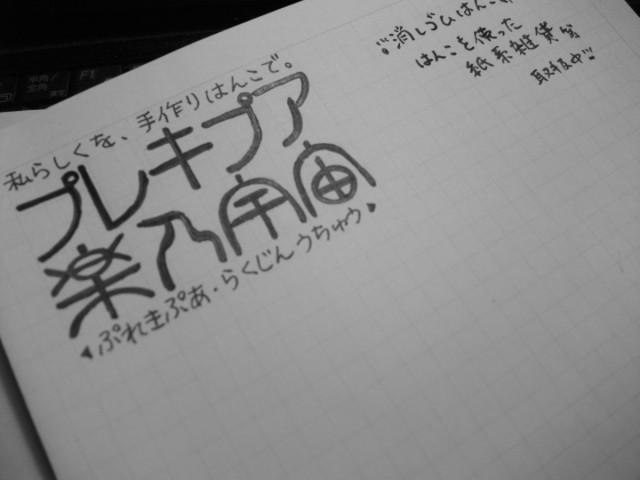 私らしくな、手作りはんこで。
プレキプア
楽乃宇宙
ぷれきぷあ・らくじんうちゅう
消しゴムはんこ
はんこを使った
紙系雑貨等
取扱中!!
半角/
全角
F1